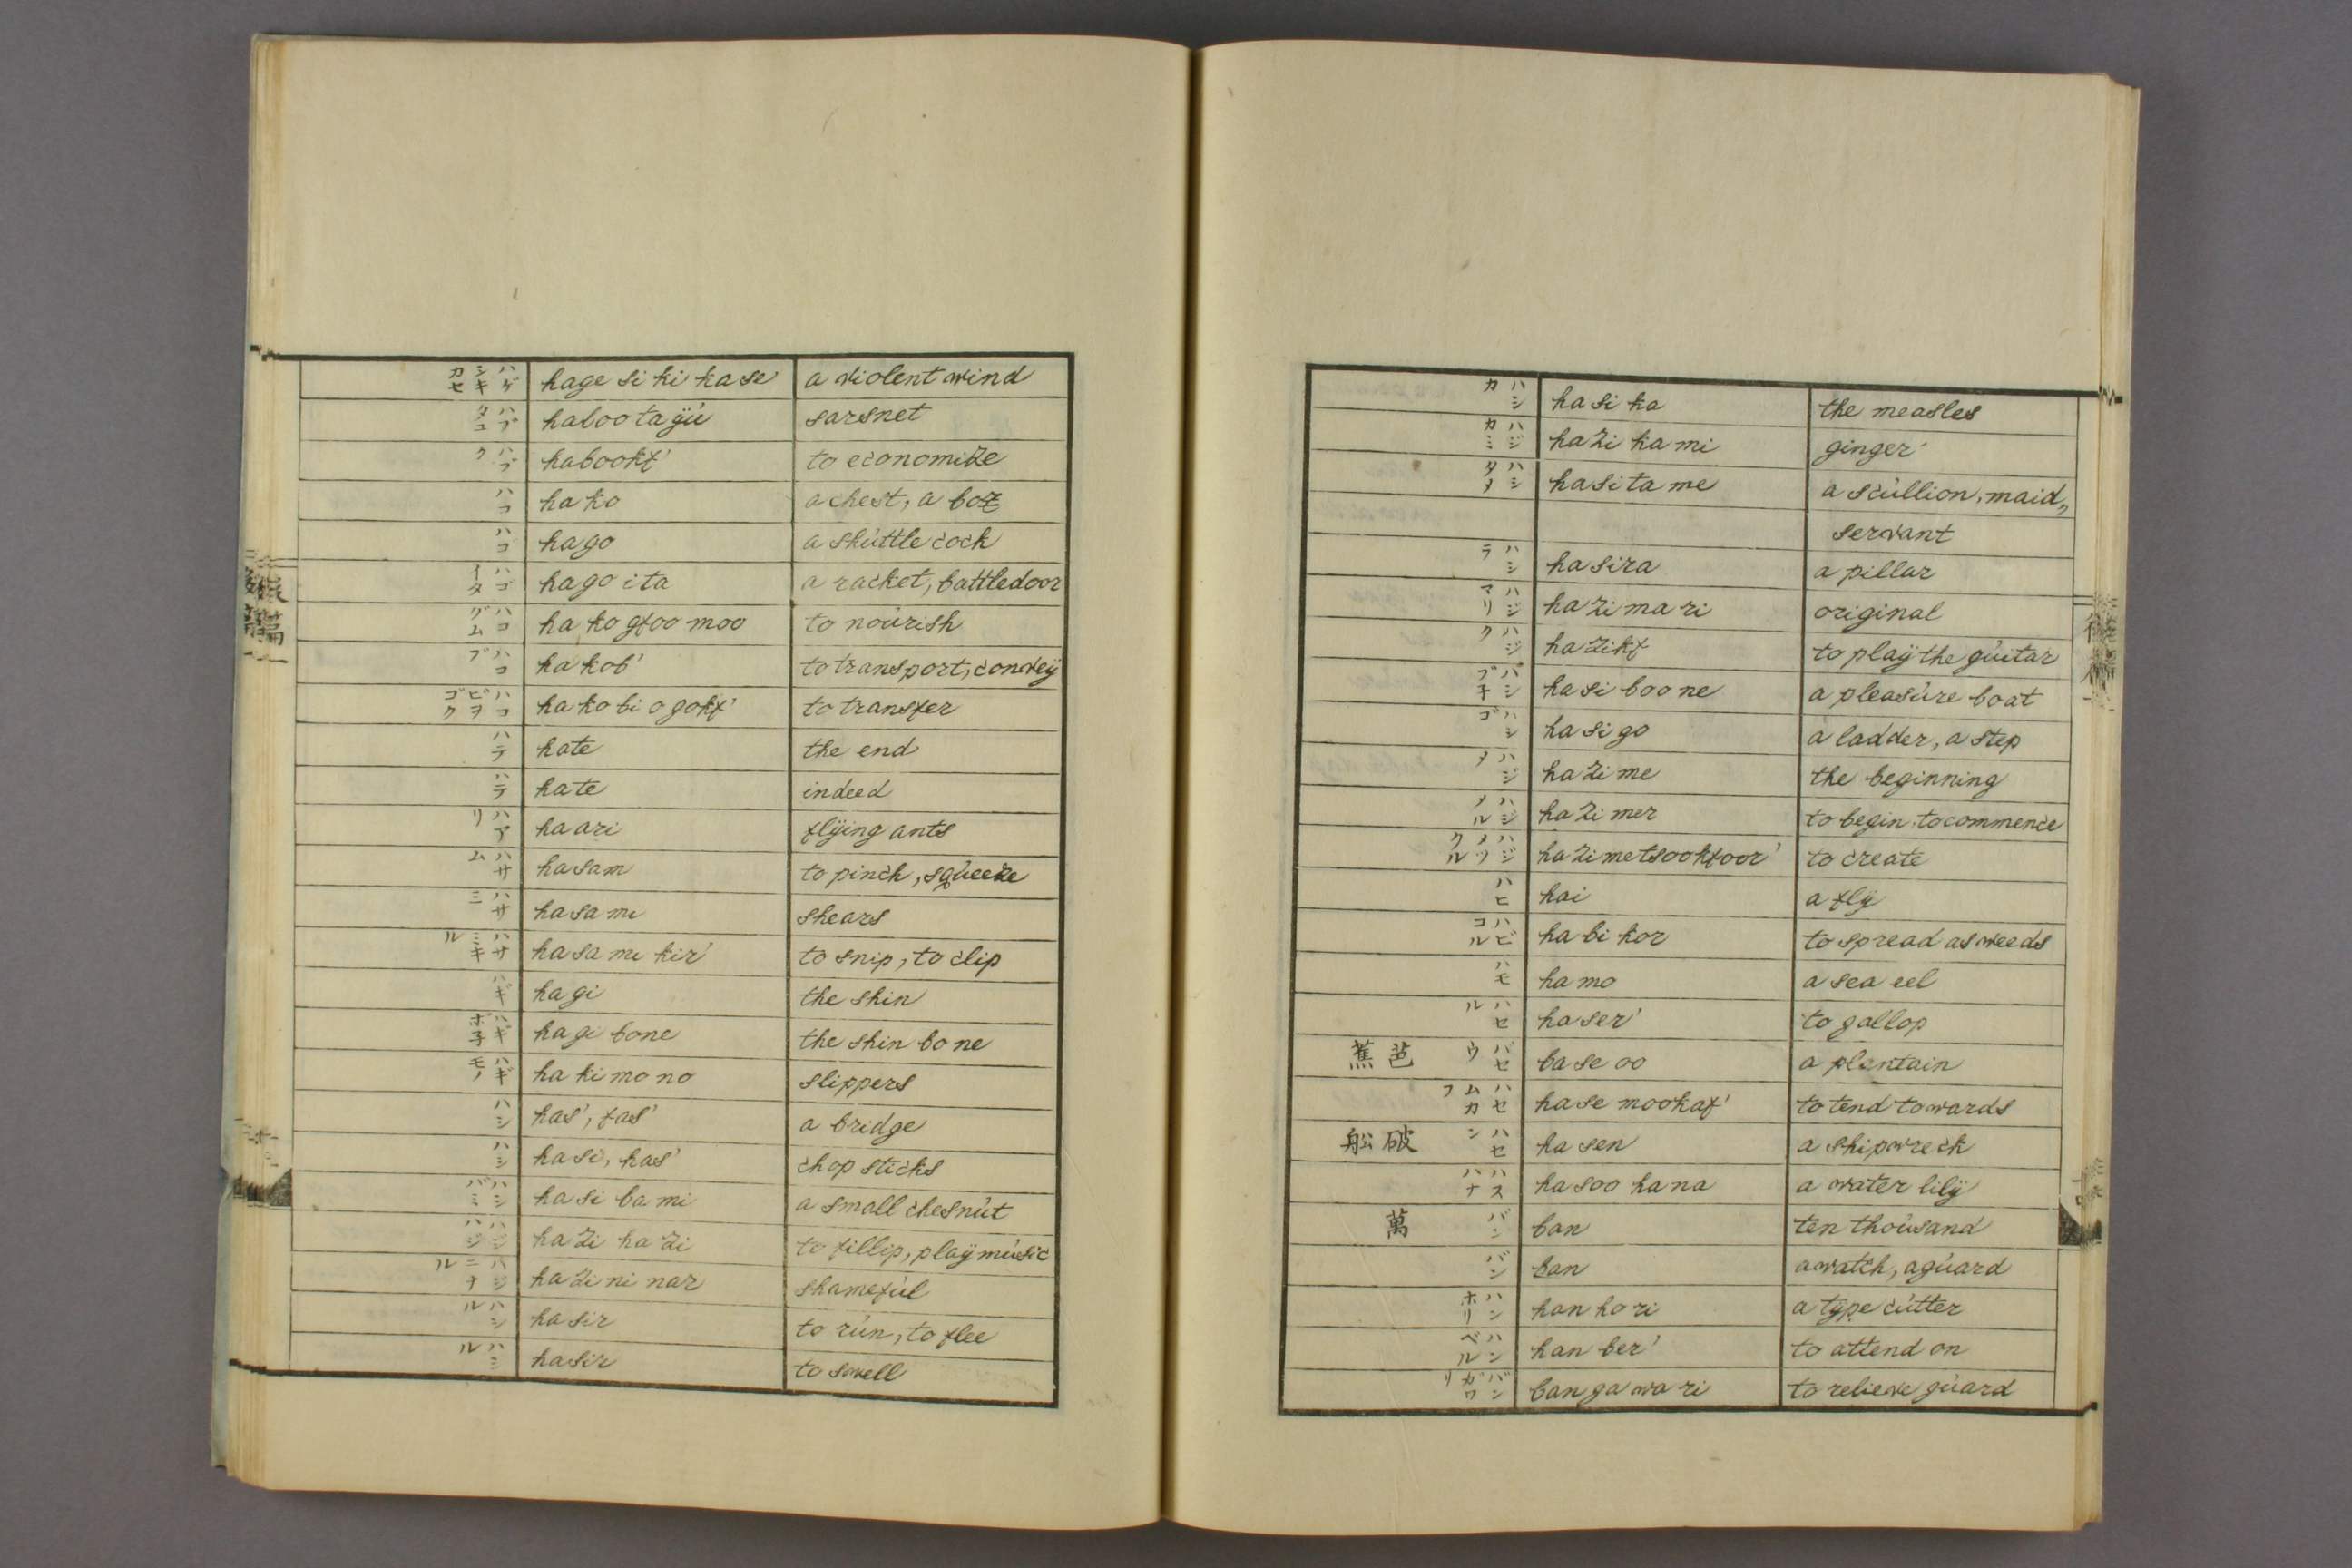 ハゲシキカセ hage si ki ka se a violent wind
ハブタユ haboo ta ÿú sarsnet
ハブク habookf' to economize
ハコ ha ko a chest, a box
ハゴ ha go a shúttle cock
ハゴイタ ha go i ta a racket, battledoor
ハコグム ha ko gfoo moo to noúrish
ハコブ ha kob' to transport, conveÿ
ハコビヲゴク ha ko bi o gokf' to transfer
ハテ hate the end
ハテ ha te indeed
ハアリ ha ari flÿing ants
ハサム hasam to pinch, sqúeeze
ハサミ ha sa mi shears
ハサミキル ha sa mi kir' to snip, to clip
ハギ ha gi the shin
ハギボ子 ha gi bone the shin bo ne
ハギモノ ha ki mo no slippers
ハシ has', fas' a bridge
ハシ ha si, has' chop sticks
ハシバミ ha si ba mi a small chesnút
ハジハジ ha zi ha zi to fillip, plaÿ músic
ハジニナル ha zi ni nar shamefúl
ハシル ha sir to rún, to flee
ハシル hasir to swell
ハシカ ha si ka the measles
ハジカミ ha zi ka mi ginger
ハシタメ ha si ta me a scúllion, maid„
servant
ハシラ ha sira a pillar
ハジマリ ha zi ma ri original
ハジク ha zikf to plaÿ the gúitar
ハシブ子 ha si boo ne a pleasúre boat
ハシゴ ha si go a ladder, a step
ハジメ ha zi me the beginning
ハジメル ha zi mer to begin, to commence
ハジメツクル ha zi me tsookfoor' to create
ハヒ hai a flÿ
ハビコル ha bi kor to spread as weeds
ハモ ha mo a sea eel
ハセル ha ser' to gallop
芭蕉 バセウ ba se oo a plantain
ハセムカフ ha se mookaf' to tend towards
破舩 ハセン ha sen a shipwreck
ハスハナ ha soo ha na a water lilÿ
萬 バン ban ten thoúsand
バン ban a watch, a gúard
ハンホリ han ho ri a tÿpe cútter
ハンベル han ber' to attend on
バンガワリ ban ga wa ri to relieve gúard